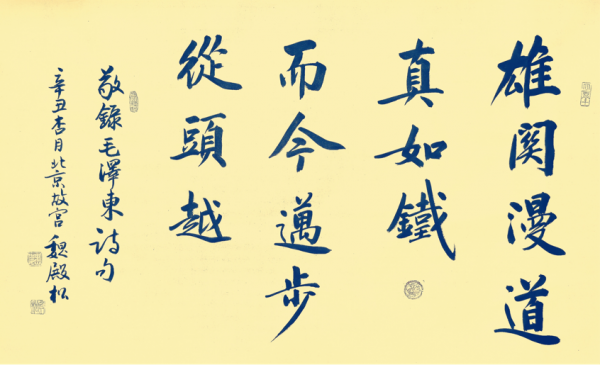 雄関漫道
真如鐵
而今邁步
從頭越
敬錄毛澤東詩句
辛丑杏月北京故宫魏殿松